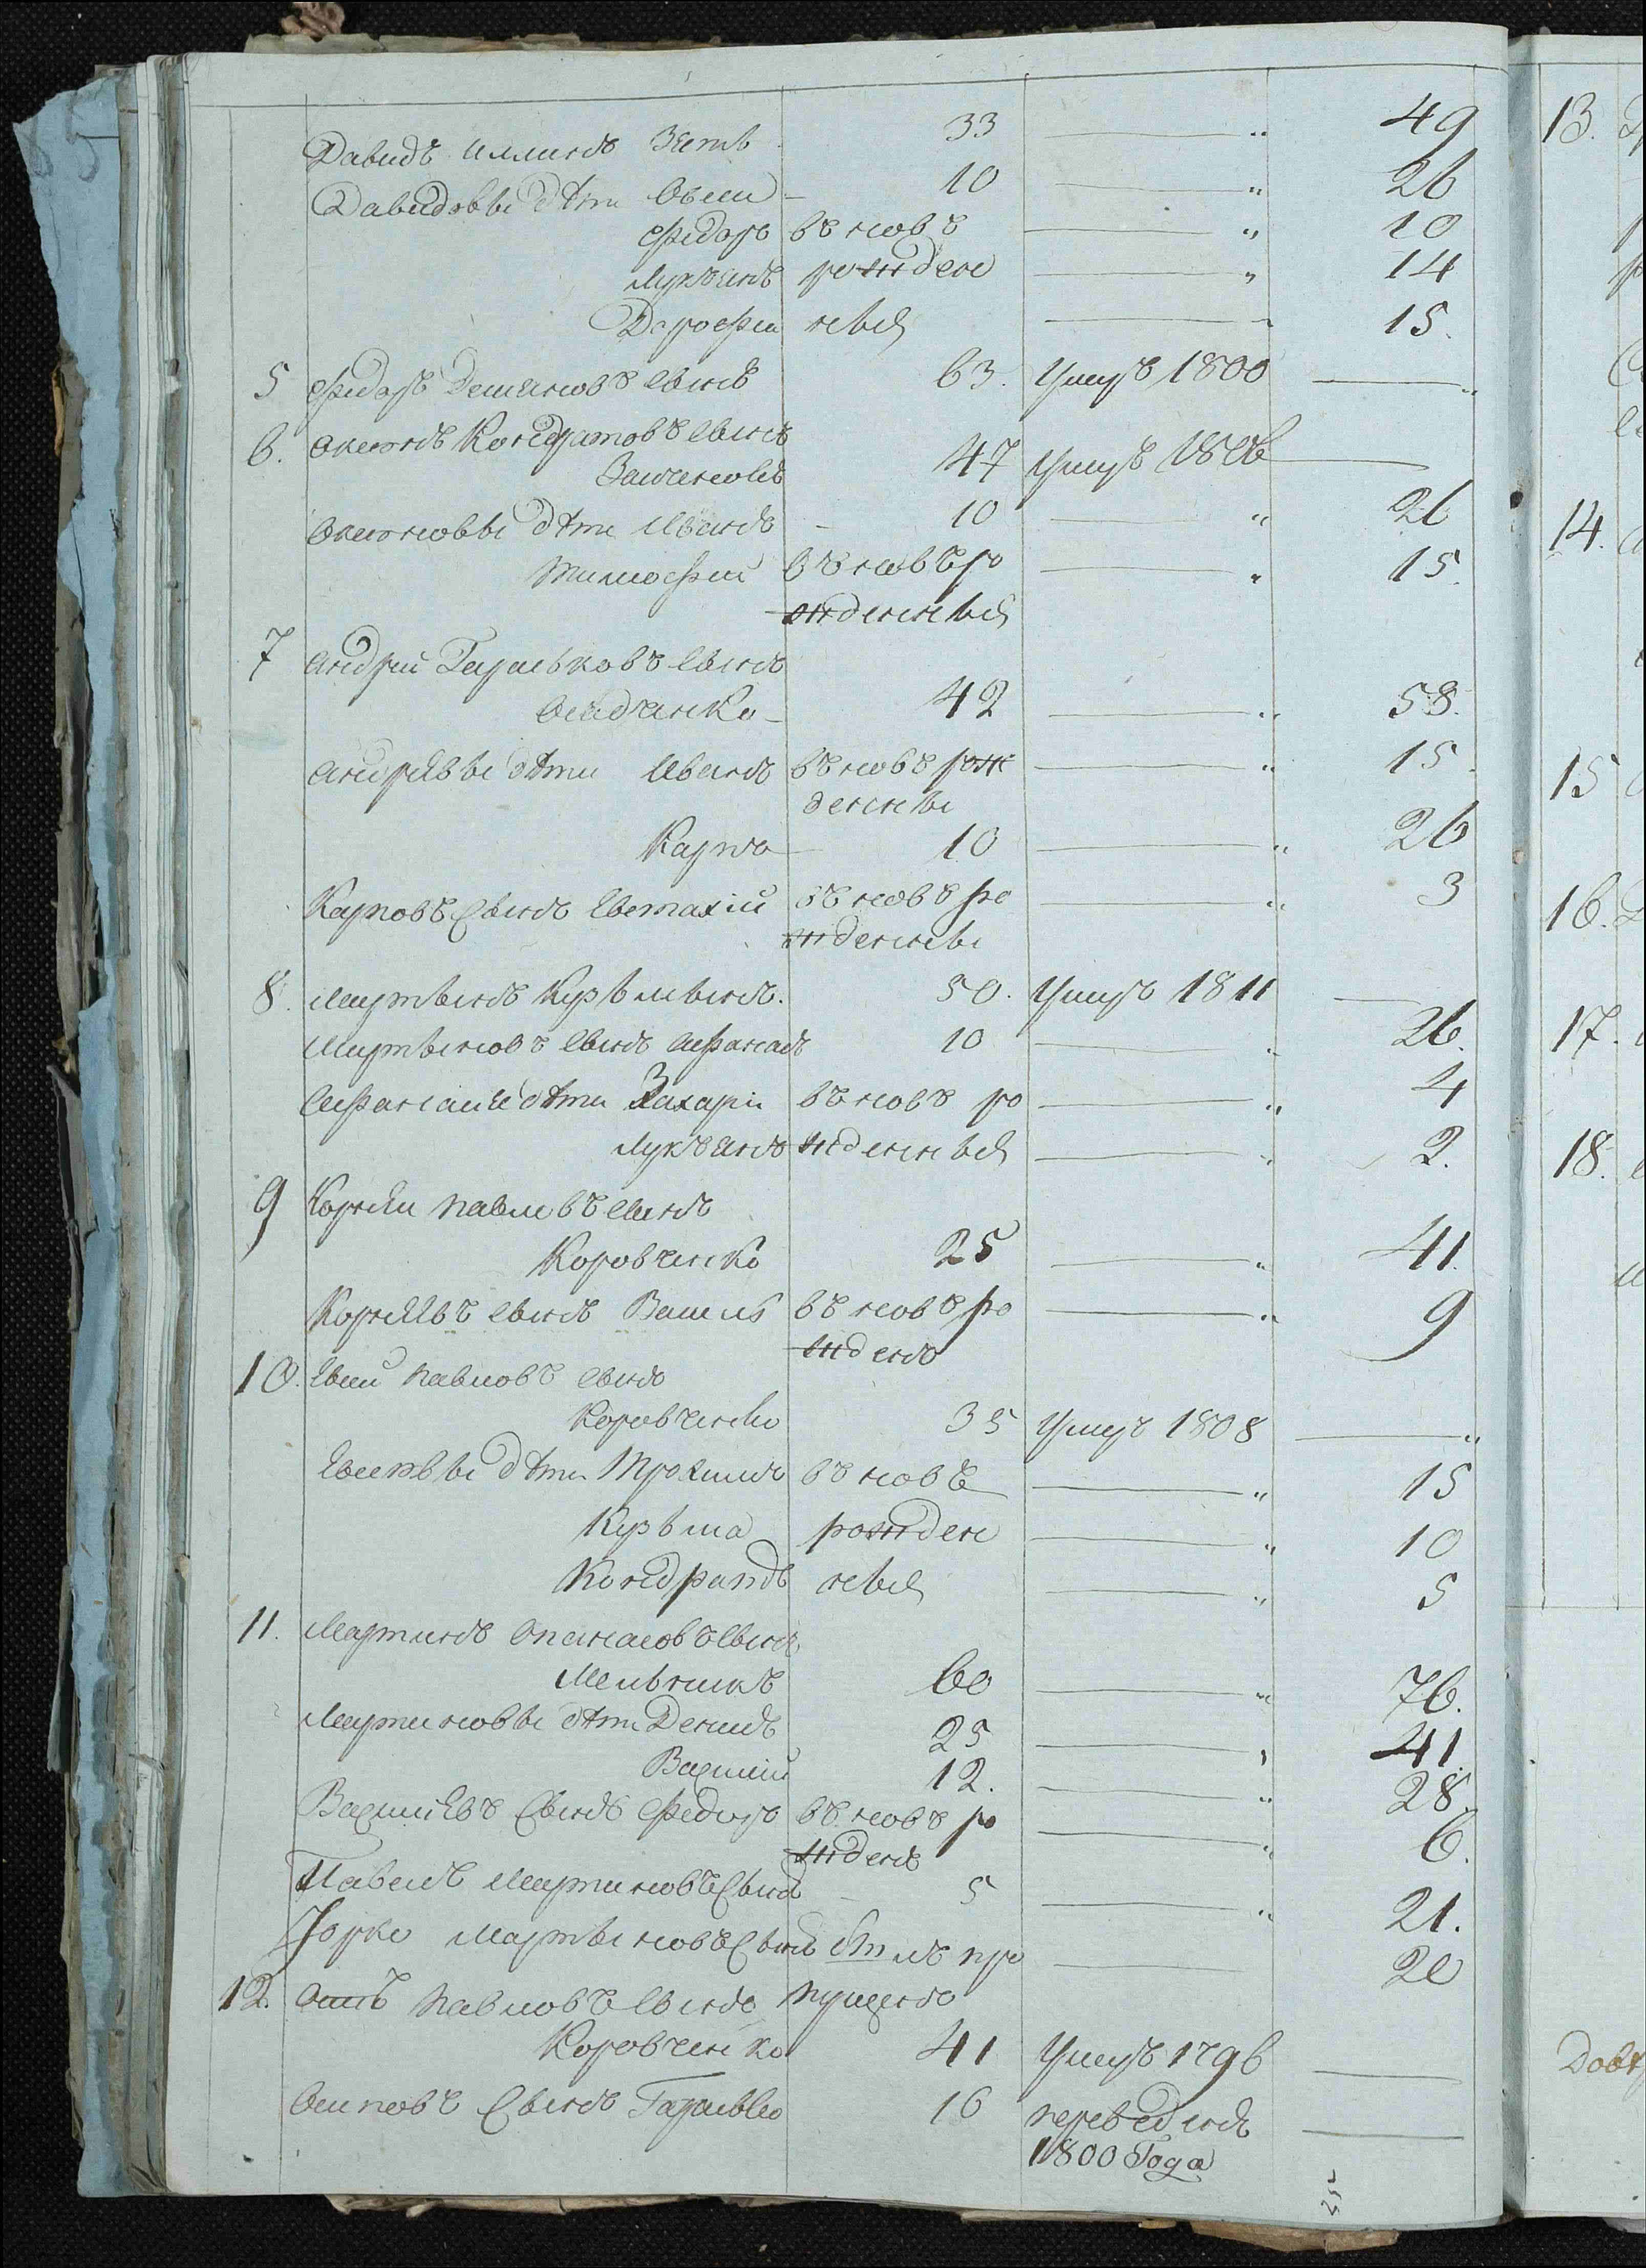 Давидъ Иллинъ Зять 33 — „ 49
Давидовы дѣти Овсей — 10 — „ 26
Федоръ въ новъ — „ 10
Лукъянъ рожден — „ 14
Дорофеи ныя — „ 15.
5 Федоръ Демяновъ сынъ 63. Умеръ 1800 — „
6. Кондратовъ сынъ
47 Умеръ —
дѣти Иванъ — 10 — „ 26
Тимофей въ новъ ро — „ 15.
жденныя
7 Андрей Гараськовъ сынъ
42 — „ 58.
Андрѣевы дѣти Иванъ въ новъ рож — „ 15.
денны
Карпъ — 10 — „ 26
Карповъ сынъ Евстахій въ новъ ро — „ 3
жденны
8. Мартынъ Кузьминъ. 50. Умеръ 1811 —
Мартыновъ сынъ Афанасъ 10 — „ 26.
дѣти Захарій въ новъ ро — „ 4
Лукъянъ жденныя — „ 2.
9 Корнѣи Павловъ сынъ
Коровченко 25 — „ 41.
Корнѣевъ сынъ Василь въ новъ ро — „ 9
жденъ
10. Евсей Павловъ сынъ
Коровченко 35 Умеръ 1808 — „
Евсеевы дѣти Трохимъ въ новъ — „ 15
Кузьма рожден — „ 10
Кондратъ ныя — „ 5
11. Мартинъ Опанасовъ сынъ
Мельникъ 60 — „ 76.
Мартиновы дѣти Денисъ 25 — „ 41
Василій 12. — „ 28.
Василіевъ сынъ Федоръ въ новъ ро — „ 6.
жденъ
Павелъ Мартиновъ сынъ — 5 — „ 21.
Юрко Мартыновъ сынъ былъ про — 20
12. Осипъ Павловъ сынъ пущенъ
Коровченко 41 Умеръ 1796 —
Осиповъ сынъ Гарасько 16 переведенъ —
1800 Года
255
13.
14.
15
16.
17.
18.